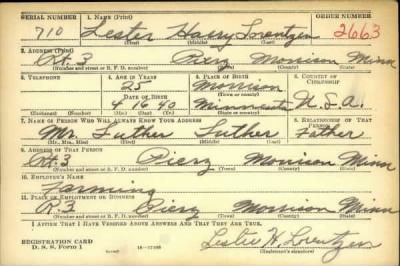 SERIAL NUMBER 1. NAME (Print) ORDER NUMBER
710 Lester Harry Lorentzen 2663
(First) (Middle) (Last)
2. ADDRESS (Print)
Rt. 3 Pierz Morrison Minn
(Number and street or R. F. D. number) (Town) (County) (State)
3. TELEPHONE 4. AGE IN YEARS 5. PLACE OF BIRTH 6. COUNTRY OF CITIZENSHIP
25 Morrison
DATE OF BIRTH (Town or county)
4 16 40 Minnesota U.S.A.
(Exchange) (Number) (Mo.) (Day) (Yr.) (State or country)
7. NAME OF PERSON WHO WILL ALWAYS KNOW YOUR ADDRESS 8. RELATIONSHIP OF THAT PERSON
Mr. Luther Luther Father
(Mr., Mrs., Miss) (First) (Middle) (Last)
9. ADDRESS OF THAT PERSON
Rt. 3 Pierz Morrison Minn
(Number and street or R. F. D. number) (Town) (County) (State)
10. EMPLOYER'S NAME
Farming
11. PLACE OF EMPLOYMENT OR BUSINESS
R. 3 Pierz Morrison Minn
(Number and street or R. F. D. number) (Town) (County) (State)
I AFFIRM THAT I HAVE VERIFIED ABOVE ANSWERS AND THAT THEY ARE TRUE.
REGISTRATION CARD
D. S. S. Form 1 Lester H. Lorentzen
(Registrant's signature)